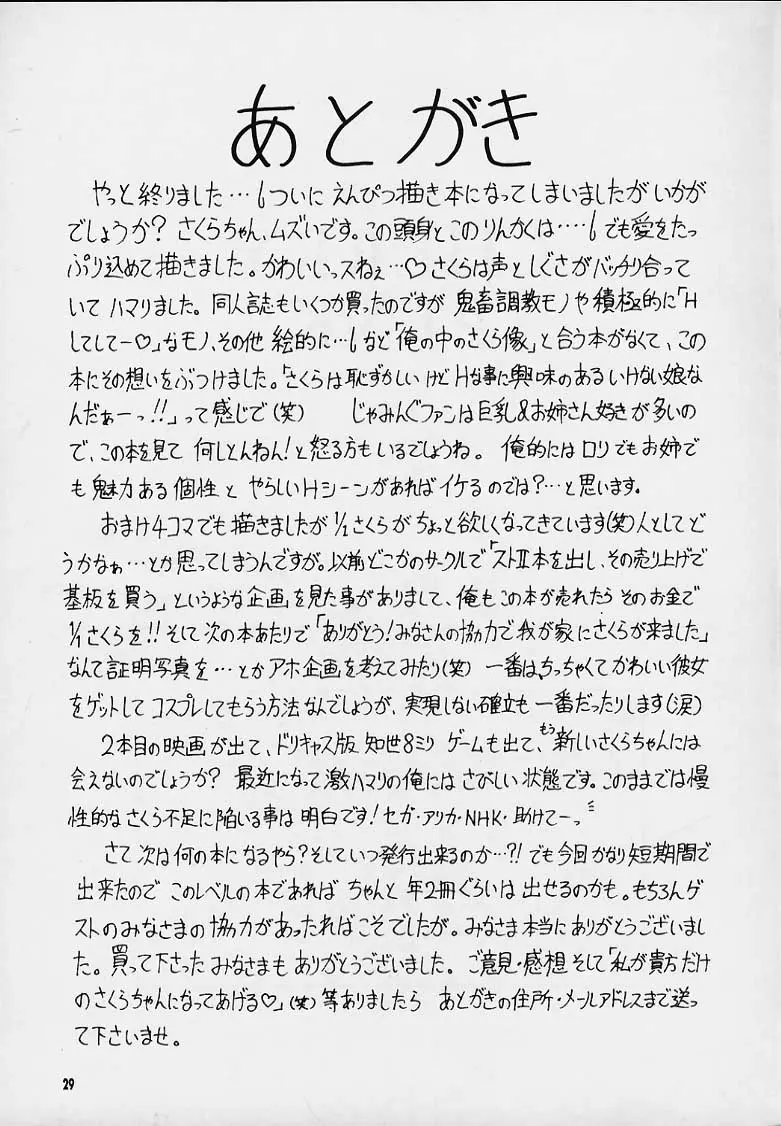 あとがき
やっと終りました…6ついに えんぴつ描き本になってしまいましたが いかが
でしょうか? さくらちゃん、ムズいです。この頭身とこのりんかくは‥‥6 でも愛をたっ
ぷり込めて描きました。かわいいっスねぇ…♡ さくらは声としぐさがバッチリ合って
いて ハマりました。同人誌もいくつか買ったのですが 鬼畜調教モノや積極的に「H
してしてー♡」なモノ、その他 絵的に…6 など「俺の中のさくら像」と合う本がなくて、この
本にその想いをぶつけました。「さくらは恥ずかしいけどHな事に興味のあるいけない娘な
んだぁーっ!!」って感じで(笑) じゃみんぐファンは巨乳&お姉さん好きが多いの
で、この本を見て 何しとんねん!と怒る方もいるでしょうね。 俺的にはロリでもお姉で
も魅力ある個性と やらしいHシーンがあればイケるのでは?…と思います。
おまけ4コマでも描きましたが 1/1さくらがちょっと欲しくなってきています(笑)人としてど
うかなぁ…とか思ってしまうんですが。以前どこかのサークルで「ストII本を出し、その売り上げで
基板を買う」というような企画を見た事がありまして、俺もこの本が売れたら そのお金で
1/1さくらを!! そして次の本あたりで「ありがとう!みなさんの協力で我が家にさくらが来ました」
なんて証明写真を…とかアホ企画を考えてみたり(笑) 一番は、ちっちゃくてかわいい彼女
をゲットして コスプレしてもらう方法なんでしょうが、実現しない確立も 一番だったりします(涙)
2本目の映画が出て、ドリキャス版 知世8ミリ ゲームも出て、もう新しいさくらちゃんには
会えないのでしょうか? 最近になって激ハマリの俺には さびしい状態です。このままでは慢
性的なさくら不足に陥いる事は 明白です!セガ・アリカ・NHK・助けてーっ
さて 次は何の本になるやら?そしていつ発行出来るのか…?! でも今回かなり短期間で
出来たので このレベルの本であれば ちゃんと 年2冊ぐらいは 出せるのかも。もちろんゲ
ストのみなさまの協力があったればこそでしたが。みなさま本当にありがとうございまし
た。買って下さった みなさまも ありがとうございました。 ご意見・感想 そして「私が貴方だけ
のさくらちゃんになってあげる♡」(笑)等ありましたら あとがきの住所・メールアドレスまで送っ
て下さいませ。
29